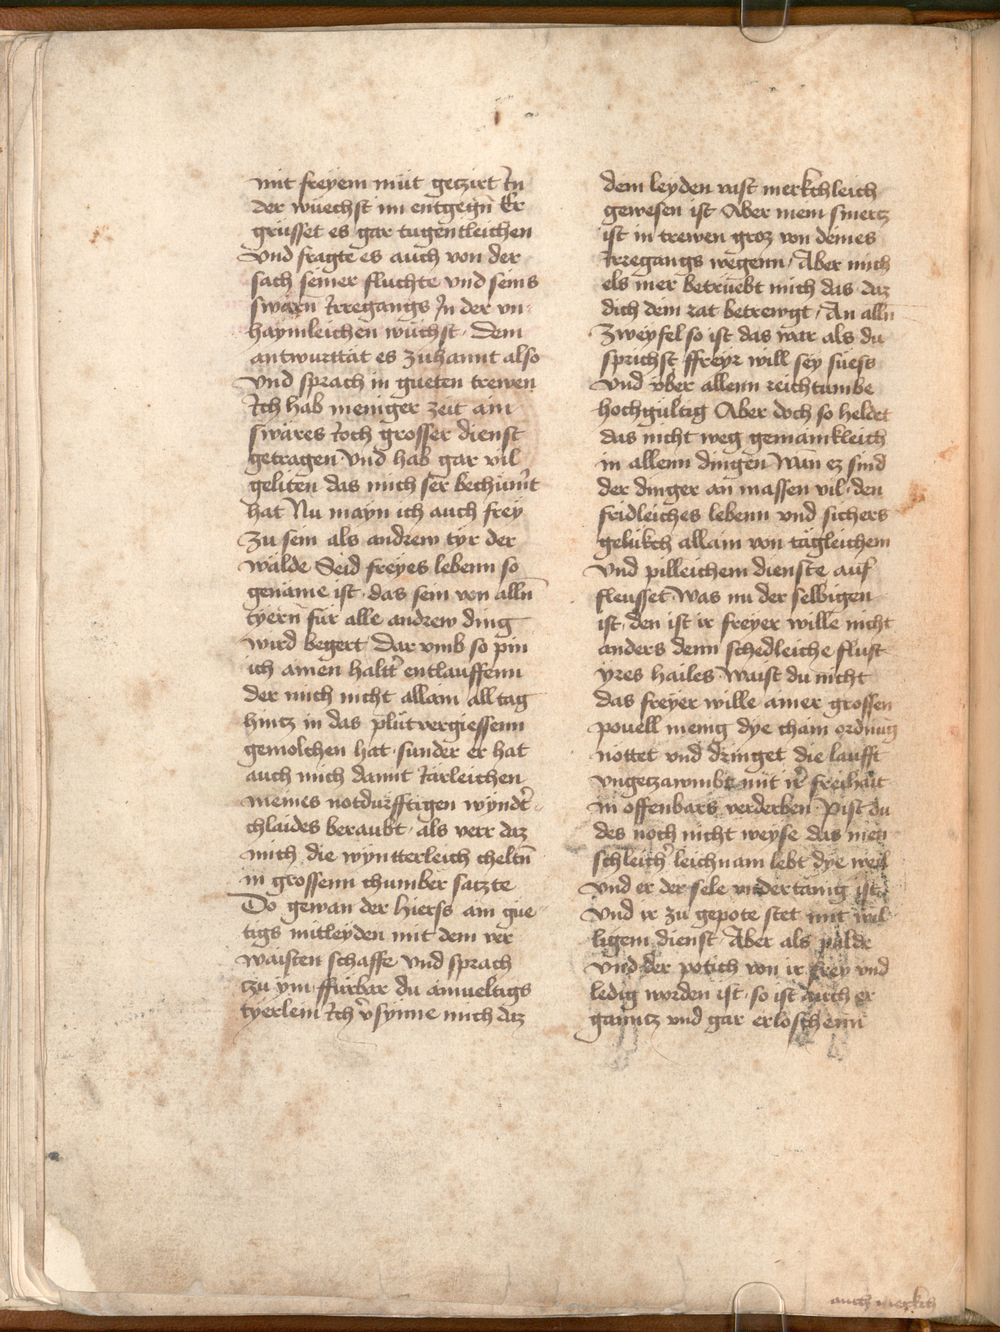 mit freyem müt geczirt In
der wüechst im entgegn̄ Er
grüsset es gar tugentleichen
Vnd fragte es auch von der
sach seiner fluchte vnd seins
swärn Irregangs In der vn-
haymleichen wüchst · Dem
antwurttät es zuhannt also
Vnd sprach in gueten trewen
Ich hab meniger zeit ain
swäres Joch grosser dienst
getragen Vnd hab gar vil
geliten das mich ser bechüm̄t
hat Nu mayn ich auch frey
Zu sein als andrew tyr der
wälde Seid freyes lebenn so
genäme ist · das sein von alln̄
tyern̄ für alle andrew ding
wird begert Dar vmb so pin
ich ainen haltt̉ entlauffenn
der mich nicht allain alltag
hintz in das plütvergiessenn
gemolchen hat · sunder er hat
auch mich damit Järleichen
meines notdurfftigen wyndt̉-
chlaides beraubt · als verr daz
mich die wyntterleich cheltn̄
in grossenn chumber satzte
Do gewan der hierss ain gue
tigs mitleyden mit dem ver
waisten schaffe vnd sprach
tzu ym ffürbar du ainueltigs
tyerlein Ich v̉synne mich daz
dem leyden vast merkchleich
gewesen ist Aber mein smertz
ist in trewen groz von deines
Irregangs wegenn · Aber mich
els mer betruebt mich das · daz
dich dein rat betrewgt · An alln
Zweyfel so ist das war als du
sprichst ffreyr will sey süess
Vnd vber allenn reichtumbe
hochgültig Aber doch so heldet
das nicht weg gemainkleich
in allenn dingen Wan ez sind
der dinger an massen vil · den
fridleiches lebenn vnd sichers
gelükch allain von tägleichem
Vnd pilleichem dienste auf
fleusset Was nu der selbigen
ist · den ist ir freyer wille nicht
anders denn schedleiche flust
yres hailes Waist du nicht
das freyer wille ainer grossen
pouell menig dye chain ordnug
nottet vnd dringet die laufft
vngetzawmbt mit ir̉ freihait
in offenbars verderben Pist du
des noch nicht weyse das men
schleich̉ leichnam lebt dye weil
Vnd er der sele vndertänig ist
Vnd ir zu gepote stet mit wil
ligem dienst · Aber als palde
Vnd der potich von ir frey vnd
ledig worden ist · so ist auch er
ganntz vnd gar erloschenn
auch merkch